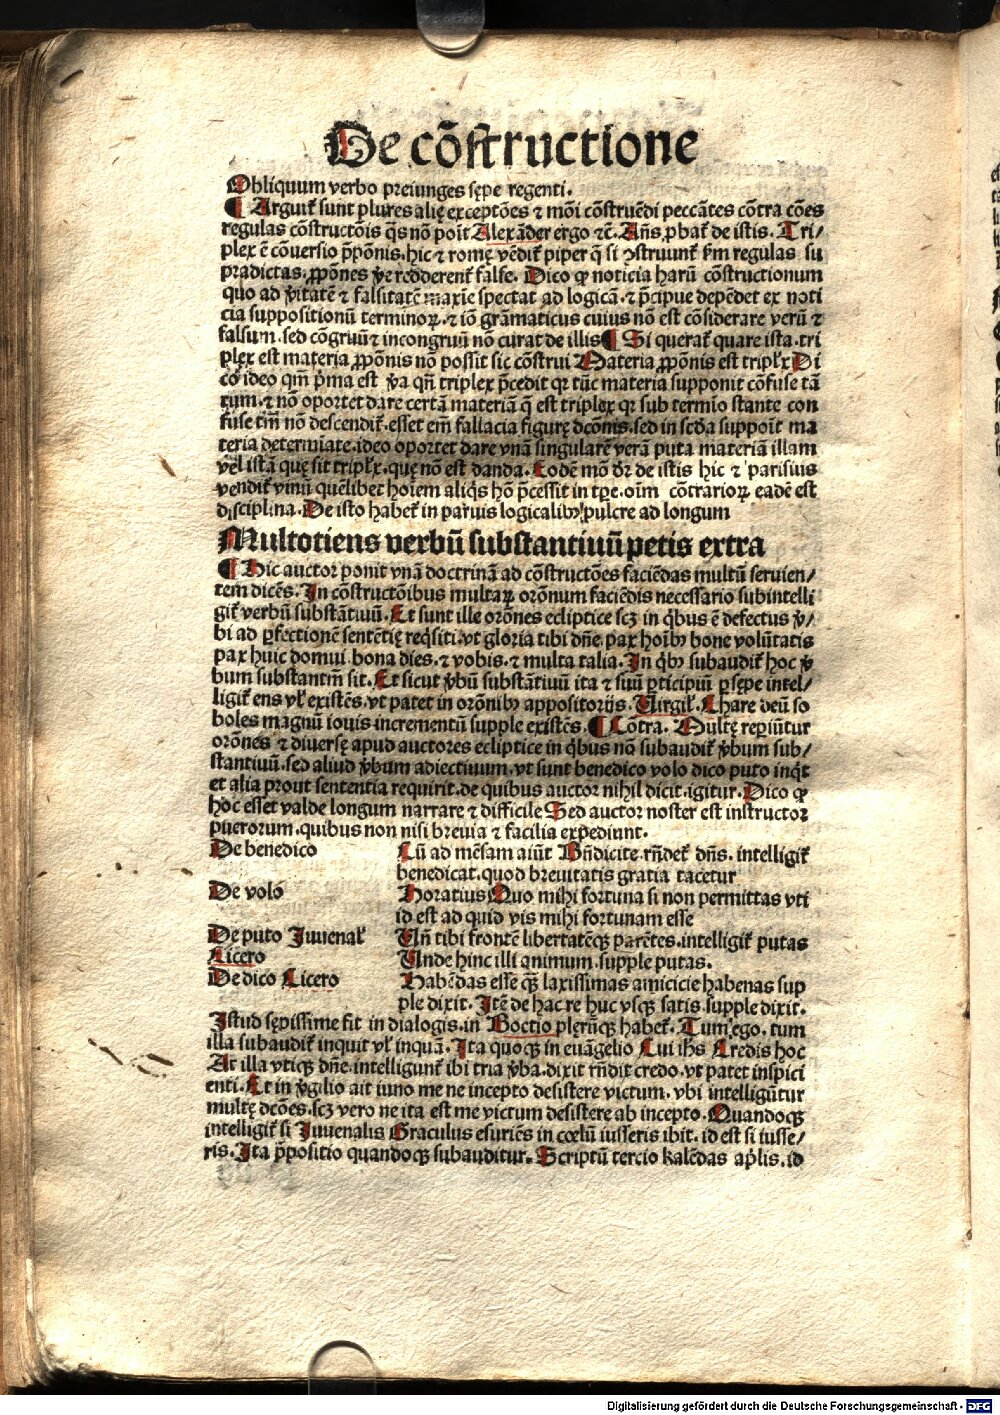 De cōſtructione
Obliquum verbo preiunges ſępe regenti.
¶ Arguit᷑ sunt plures alię exceptōes ⁊ mōi cōſtruēdi peccātes cōtra cōes
regulas cōſtructōis q̄s nō poīt Alexāder ergo ⁊c̄. Añs ꝓbat᷑ de iſtis. Tri/
plex ē cōuerſio ꝓpōnis. hic ⁊ romę vēdit᷑ piper q̄ ſi ꝯſtruunt᷑ ſm regulas su
pradictas. ꝓpōnes v̄e redderent᷑ falſe. Dico ꝙ noticia harū cōſtructionum
quo ad v̄itatē ⁊ falſitatē maxīe ſpectat ad logicā. ⁊ p̄cipue depēdet ex noti
cia ſuppoſitionū terminoꝝ. ⁊ iō grāmaticus cuius nō eſt cōſiderare verū ⁊
falſum. ſed cōgruū ⁊ incongruū nō curat de illis ¶ Si querat᷑ quare iſta. tri
plex eſt materia ꝓpōnis nō poſſit ſic cōſtrui Materia ꝓpōnis eſt tripl᷑x Di
co ideo qm̄ p̄ma eſt v̄a qn̄ triplex p̄cedit qr tūc materia ſupponit cōfuſe tā
tum. ⁊ nō oportet dare certā materiā q̄ eſt triplex qr ſub termīo ſtante con
fuſe tm̄ nō deſcendit᷑. eſſet em̄ fallacia figurę dcōnis. ſed in ſcd̄a ſuppoīt ma
teria determīate. ideo oportet dare vnā ſingularē verā puta materiā illam
vel iſtā quę ſit tripl᷑x. quę nō eſt danda. Eodē mō dr̄ de iſtis hic ⁊ pariſius
vendit᷑ vinū quēlibet hoīem aliq̇s hō p̄ceſſit in tꝑe. oīm cōtrarioꝝ eadē eſt
diſciplina. De iſto habet᷑ in paruis logicalibꝰ pulcre ad longum
Multotiens verbū ſubſtantiuū petis extra
¶ Hic auctor ponit vnā doctrinā ad cōſtructōes faciēdas multū ſeruien/
tem dicēs. In cōſtructōibus multaꝝ orōnum faciēdis neceſſario ſubintelli
git᷑ verbū ſubſtātiuū. Et ſunt ille orōnes ecliptice ſcꝫ in q̇bus ē defectus v̄/
bi ad ꝑfectionē ſentētię req̇ſiti. vt gloria tibi dn̄e. pax hoībꝰ bone volūtatis
pax huic domui. bona dies. ⁊ vobis. ⁊ multa talia. In q̇bꝰ ſubaudit᷑ hoc v̄
bum ſubſtantm̄ ſit. Et ſicut v̄bū ſubſtātiuū ita ⁊ ſuū ꝑticipiū ꝑſępe intel/
ligit᷑ ens vl᷑ exiſtēs. vt patet in orōnibꝰ appoſitorijs. Virgil᷑. Chare deū ſo
boles magnū iouis incrementū ſupple exiſtēs. ¶ Cōtra. Multę reꝑiūtur
orōnes ⁊ diuerſę apud auctores ecliptice in q̇bus nō ſubaudit᷑ v̄bum ſub/
ſtantiuū. ſed aliud v̄bum adiectiuum. vt ſunt benedico volo dico puto inq̇t
et alia prout ſententia requirit. de quibus auctor nihil dicit. igitur. Dico ꝙ
hoc eſſet valde longum narrare ⁊ difficile Sed auctor noſter eſt inſtructor
puerorum. quibus non niſi breuia ⁊ facilia expediunt.
De benedico Cū ad mēſam aiūt Bn̄dicite. rn̄det᷑ dn̄s. intelligit᷑
benedicat. quod breuitatis gratia tacetur
De volo Horatius Quo mihi fortuna ſi non permittas vti
id eſt ad quid vis mihi fortunam eſſe
De puto Juuenal᷑ Vn̄ tibi frontē libertatēqꝫ parētes. intelligit᷑ putas
Cicero Vnde hinc illi animum. ſupple putas.
De dico Cicero Habēdas eſſe qꝫ laxiſſimas amicicie habenas ſup
ple dixit. Itē de hac re huc vſqꝫ ſatis. ſupple dixit.
Iſtud ſępiſſime fit in dialogis. in Boetio plerūqꝫ habet᷑. Tum ego. tum
illa ſubaudit᷑ inquit vl᷑ inquā. Ita quoqꝫ in euāgelio Cui ih̄s Credis hoc
At illa vtiqꝫ dn̄e. intelligunt᷑ ibi tria v̄ba. dixit rn̄dit credo. vt patet inſpici
enti. Et in v̄gilio ait iuno me ne incepto deſiſtere victum. vbi intelligūtur
multę dcōes. ſcꝫ vero ne ita eſt me victum deſiſtere ab incepto. Quandoqꝫ
intelligit᷑ ſi Juuenalis Graculus eſuriēs in cœlū iuſſeris ibit. id eſt ſi iuſſe/
ris. Ita p̄poſitio quandoqꝫ ſubauditur. Scriptū tercio kalēdas apͥlis. id
Digitalisierung gefördert durch die Deutsche Forschungsgemeinschaft - DFG